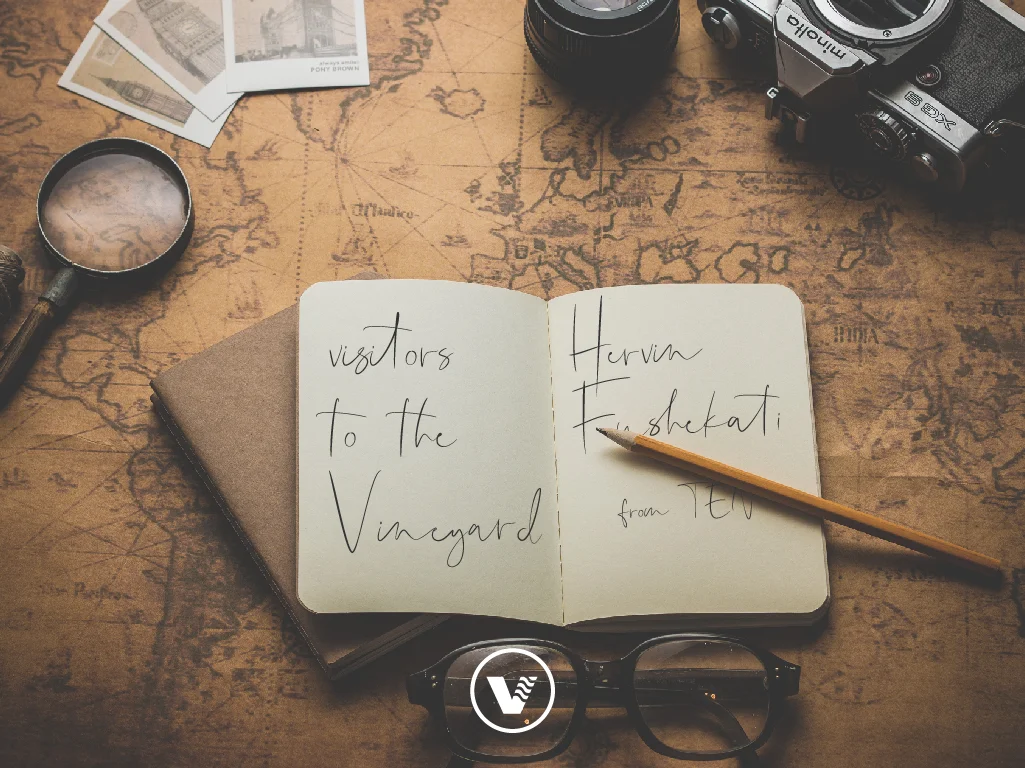 PONY BROWN
minolta
visitors
to the
Vineyard
Hervin
Fushekati
from TEN
INDIA